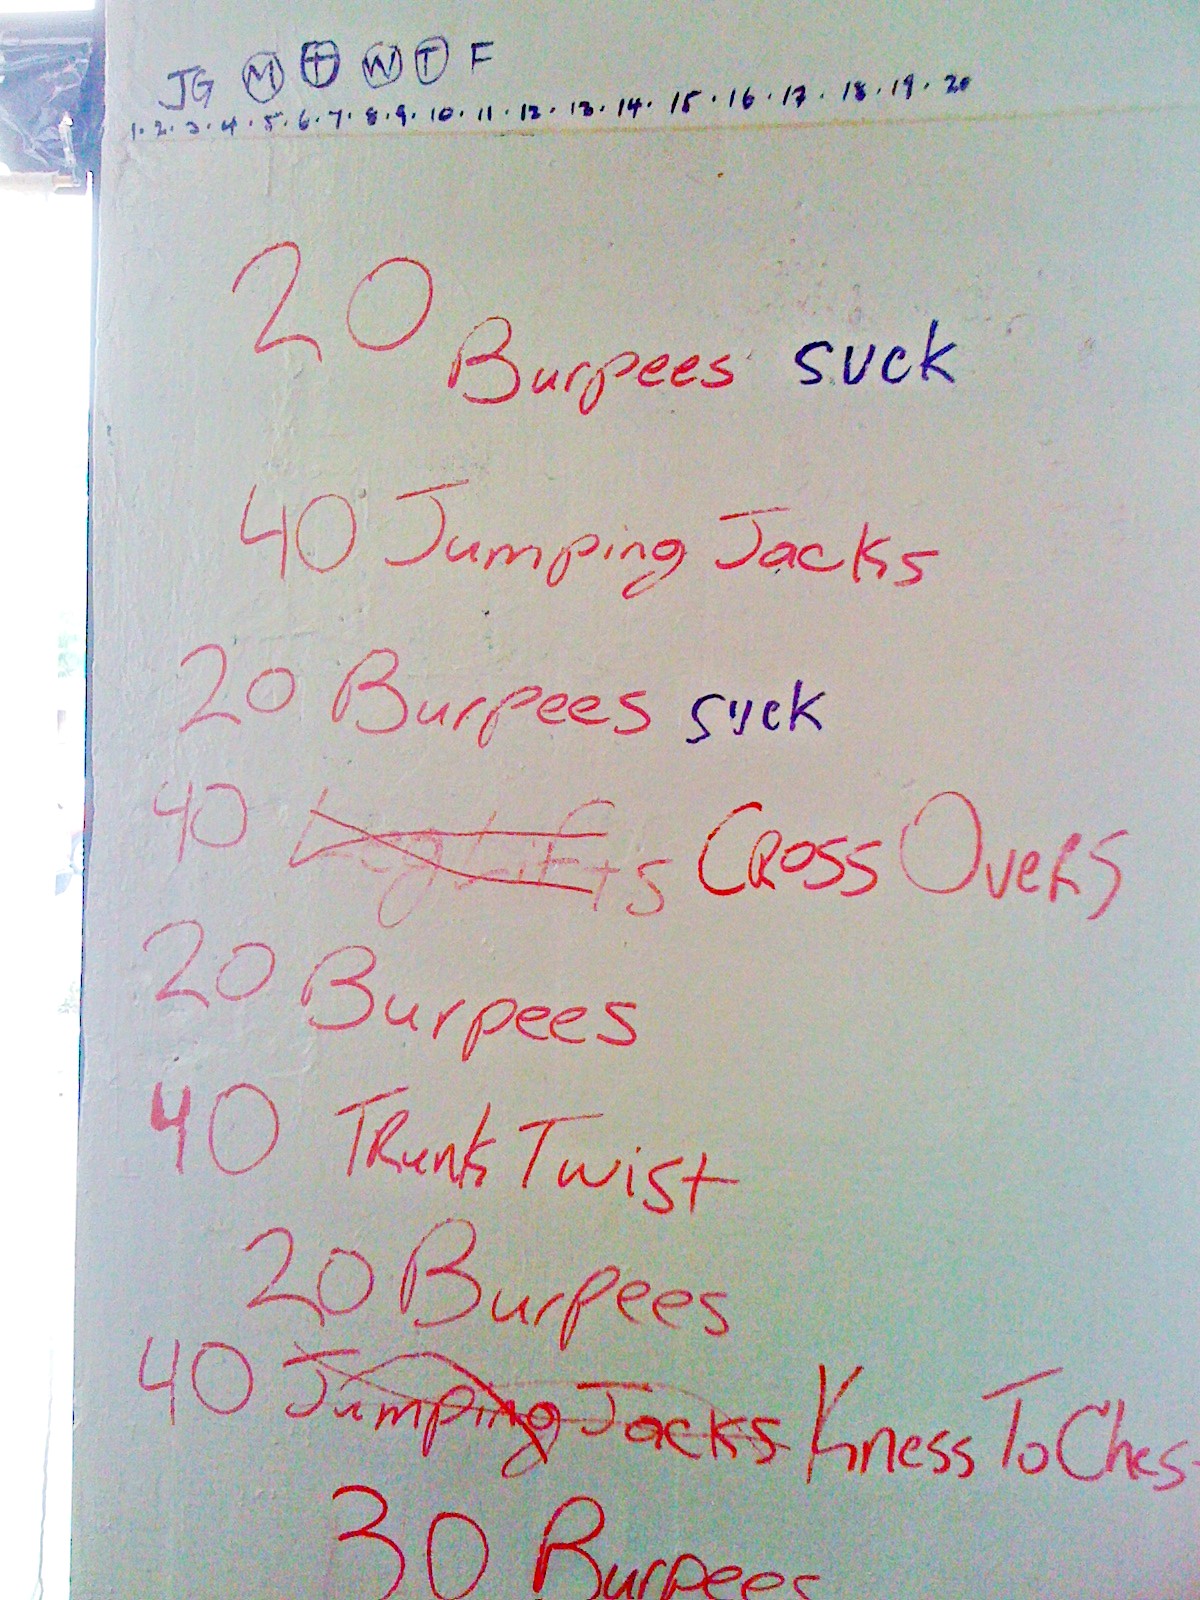 JG M T W T F
1. 2. 3. 4. 5. 6. 7. 8. 9. 10. 11. 12. 13. 14. 15. 16. 17. 18. 19. 20
20 Burpees suck
40 Jumping Jacks
20 Burpees suck
40 Leg Lifts Cross Overs
20 Burpees
40 Trunk Twist
20 Burpees
40 Jumping Jacks Kness To Ches
30 Burpees